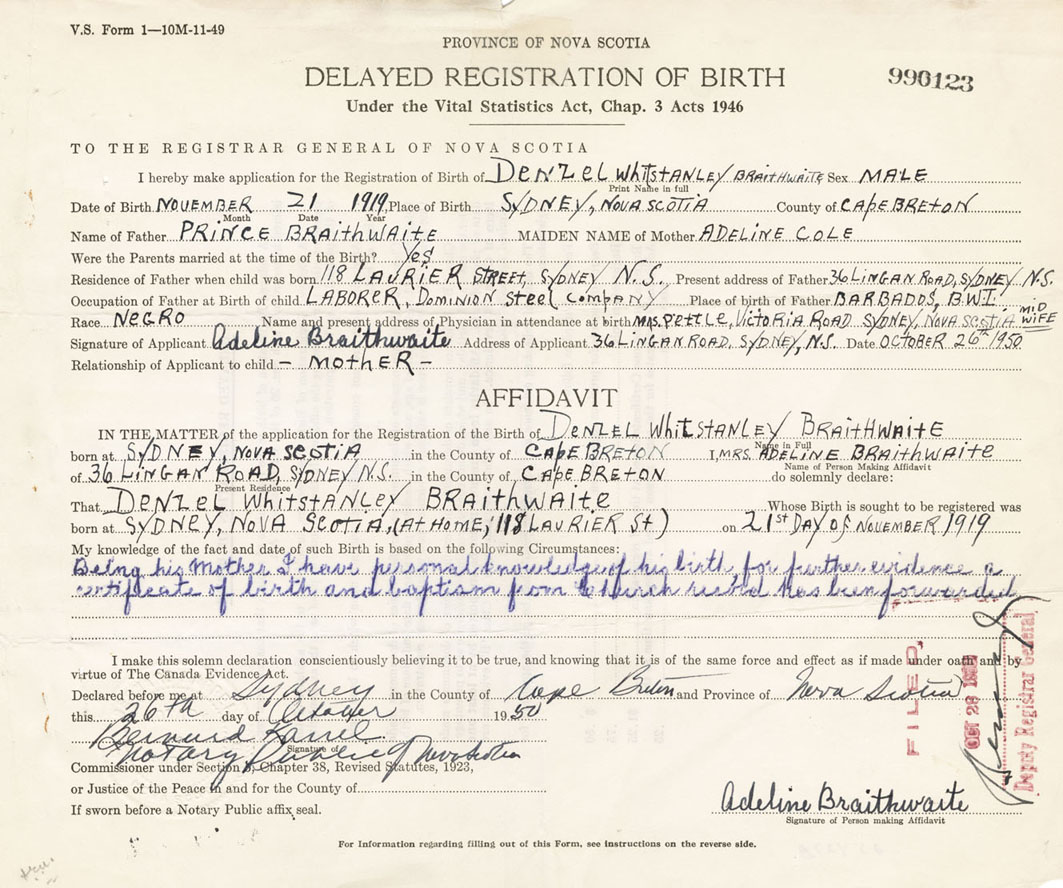 V.S. Form 1—10M-11-49
PROVINCE OF NOVA SCOTIA
DELAYED REGISTRATION OF BIRTH
990123
Under the Vital Statistics Act, Chap. 3 Acts 1946
TO THE REGISTRAR GENERAL OF NOVA SCOTIA
I hereby make application for the Registration of Birth of DENZEL WHITSTANLEY BRAITHWAITE Sex MALE
Print Name in full
Date of Birth NOVEMBER 21 1919 Place of Birth SYDNEY, NOVA SCOTIA County of CAPE BRETON
Month Date Year
Name of Father PRINCE BRAITHWAITE MAIDEN NAME of Mother ADELINE COLE
Were the Parents married at the time of the Birth? Yes
Residence of Father when child was born 118 LAURIER STREET, SYDNEY N.S. Present address of Father 36 LINGAN ROAD, SYDNEY N.S.
Occupation of Father at Birth of child LABORER, DOMINION STEEL COMPANY Place of birth of Father BARBADOS, B.W.I.
Race NEGRO Name and present address of Physician in attendance at birth MRS. PETTLE, VICTORIA ROAD SYDNEY, NOVA SCOTIA MID WIFE
Signature of Applicant Adeline Braithwaite Address of Applicant 36 LINGAN ROAD, SYDNEY, N.S. Date OCTOBER 26th 1950
Relationship of Applicant to child - MOTHER -
AFFIDAVIT
IN THE MATTER of the application for the Registration of the Birth of DENZEL WHITSTANLEY BRAITHWAITE
Name in Full
born at SYDNEY, NOVA SCOTIA in the County of CAPE BRETON I, MRS. ADELINE BRAITHWAITE
Name of Person Making Affidavit
of 36 LINGAN ROAD, SYDNEY N.S. in the County of CAPE BRETON do solemnly declare:
Present Residence
That DENZEL WHITSTANLEY BRAITHWAITE Whose Birth is sought to be registered was
born at SYDNEY, NOVA SCOTIA, (AT HOME, 118 LAURIER St) on 21st DAY OF NOVEMBER 1919
My knowledge of the fact and date of such Birth is based on the following Circumstances:
Being his Mother I have personal knowledge of his birth for further evidence a
certificate of birth and baptism from Church has been forwarded
I make this solemn declaration conscientiously believing it to be true, and knowing that it is of the same force and effect as if made under oath and by
virtue of The Canada Evidence Act.
Declared before me at Sydney in the County of Cape Breton and Province of Nova Scotia
this 26th day of October 1950
Bernard
Signature of
Notary Public of Nova Scotia
Commissioner under Section 3, Chapter 38, Revised Statutes, 1923,
or Justice of the Peace in and for the County of
If sworn before a Notary Public affix seal.
Adeline Braithwaite
Signature of Person making Affidavit
For Information regarding filling out of this Form, see instructions on the reverse side.
FILED,
OCT 28 1950
Deputy Registrar General